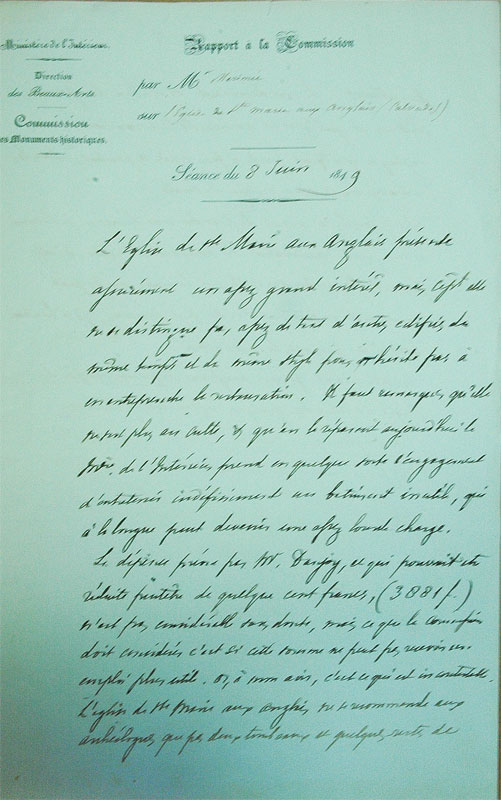 Ministère de l'Intérieur.
Direction
des Beaux-Arts
Commission
des Monuments historiques.
Rapport à la Commission
par Mr Mérimée
sur l'Eglise de Ste Marie aux Anglais (Calvados)
Séance du 8 Juin 1849
L'Eglise de Ste Marie aux Anglais présente
assurément un assez grand intérêt, mais elle
ne se distingue pas assez de tant d'autres édifices du
même temps et du même style pour hésite pas à
en entreprendre la restauration. Il faut remarquer qu'elle
ne sert plus au culte, & qu'en la réparant aujourd'hui le
Mtre de l'Intérieur prend en quelque sorte l'engagement
d'entretenir indéfiniment un bâtiment inutile, qui
à la longue peut devenir une assez lourde charge.
La dépense prévue par Mr. Danjoy, et qui pourrait être
réduite peut-être de quelque cent francs, (3881 f.)
n'est pas considérable sans doute, mais ce que la commission
doit considérer c'est si cette somme ne peut pas recevoir un
emploi plus utile. Or, à mon avis, c'est ce qui est incontestable.
L'église de Ste Marie aux Anglais, ne se recommande aux
archéologues que par deux tombeaux et quelques restes de